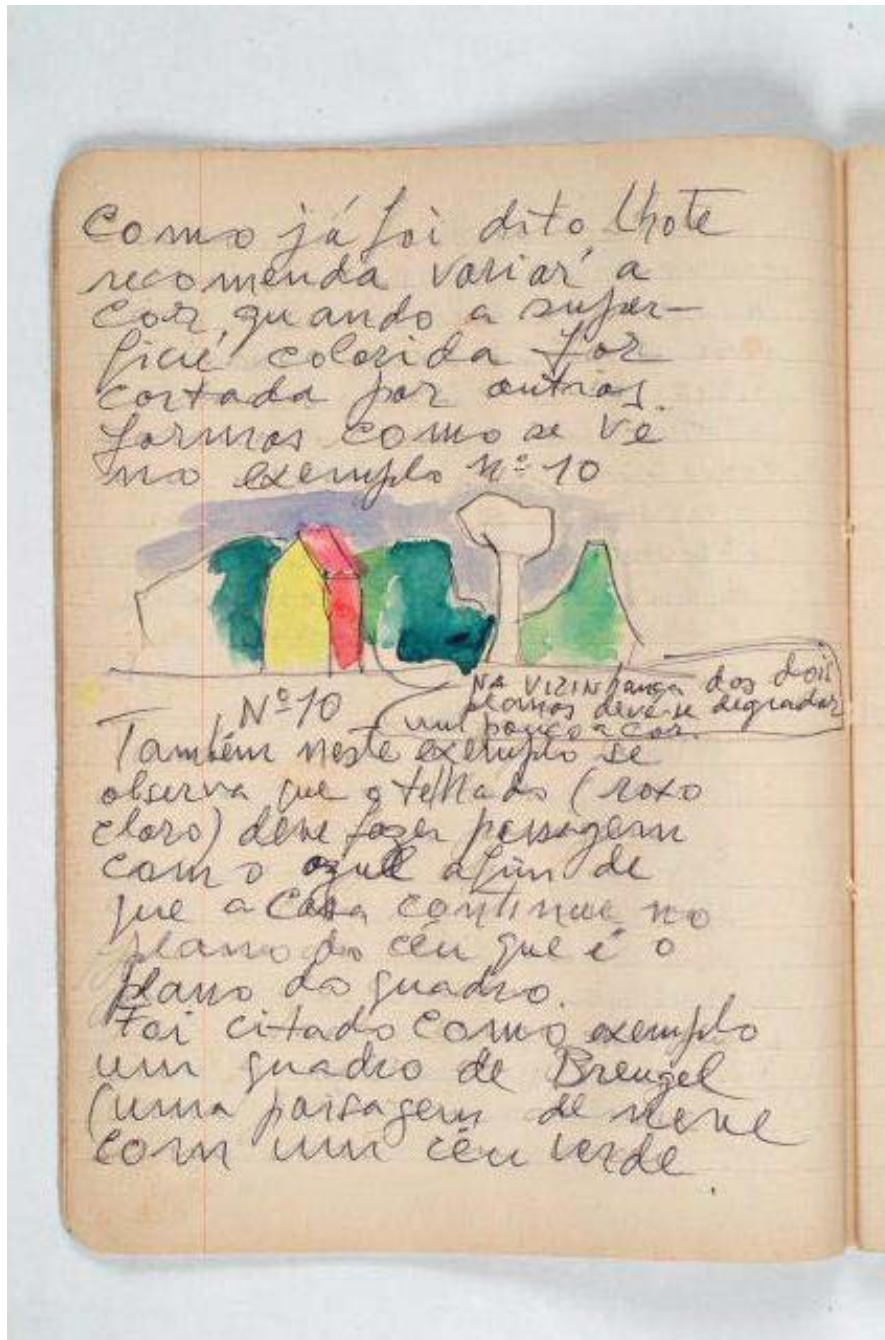 Como já foi dito Lhote
recomenda variar a
cor, quando a super-
ficie colorida for
cortada por outras
formas como se vê
no exemplo Nº 10
Nº 10
NA VIZINhança dos dois
planos deve-se degradar
um pouco a cor.
Também neste exemplo se
observa que o telhado (roxo
claro) deve fazer passagem
com o azul afim de
que a casa continue no
plano do céu que é o
plano do quadro.
Foi citado como exemplo
um quadro de Breugel
(uma paisagem de neve
com um céu verde